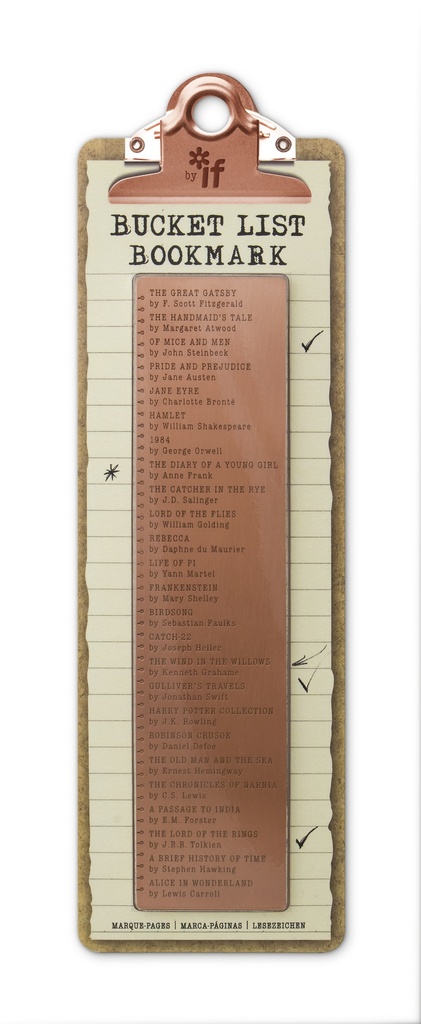 by if
BUCKET LIST
BOOKMARK
THE GREAT GATSBY
by F. Scott Fitzgerald
THE HANDMAID'S TALE
by Margaret Atwood
OF MICE AND MEN
by John Steinbeck
PRIDE AND PREJUDICE
by Jane Austen
JANE EYRE
by Charlotte Brontë
HAMLET
by William Shakespeare
1984
by George Orwell
THE DIARY OF A YOUNG GIRL
by Anne Frank
THE CATCHER IN THE RYE
by J.D. Salinger
LORD OF THE FLIES
by William Golding
REBECCA
by Daphne du Maurier
LIFE OF PI
by Yann Martel
FRANKENSTEIN
by Mary Shelley
BIRDSONG
by Sebastian Faulks
CATCH-22
by Joseph Heller
THE WIND IN THE WILLOWS
by Kenneth Grahame
GULLIVER'S TRAVELS
by Jonathan Swift
HARRY POTTER COLLECTION
by J.K. Rowling
ROBINSON CRUSOE
by Daniel Defoe
THE OLD MAN AND THE SEA
by Ernest Hemingway
THE CHRONICLES OF NARNIA
by C.S. Lewis
A PASSAGE TO INDIA
by E.M. Forster
THE LORD OF THE RINGS
by J.R.R. Tolkien
A BRIEF HISTORY OF TIME
by Stephen Hawking
ALICE IN WONDERLAND
by Lewis Carroll
MARQUE-PAGES | MARCA-PÁGINAS | LESEZEICHEN